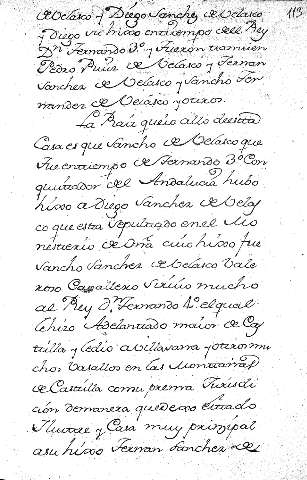 113
de Velasco y Diego Sanchez de Velasco
y Diego su hixo entiempo del Rey
Dn. Fernando 3º y fueron tamvien
Pedro Ruiz de Velasco y Fernan
Sanchez de Velasco y Sancho For
nandez de Velasco y otros.
La Raiz que io allo de esta
Casa es que Sancho de Velasco que
fue entiempo de Fernando 3º Con
quistador del Andalucia hubo
hixo a Diego Sanchez de Velas
co que esta sepultado en el Mo
nesterio de Oña cuio hixo fue
Sancho Sanchez de Velasco Vale
roso Cavallero sirvio mucho
al Rey Dn. Fernando 4º el qual
le hizo Adelantado maior de Cas
tilla y le dio a Villasana y otros mu
chos Vasallos en las Montañas
de Castilla comu prema Jurisdi
cion demanera que dexo Estado
Illustre y Casa muy prinzipal
a su hixo Fernan Sanchez de